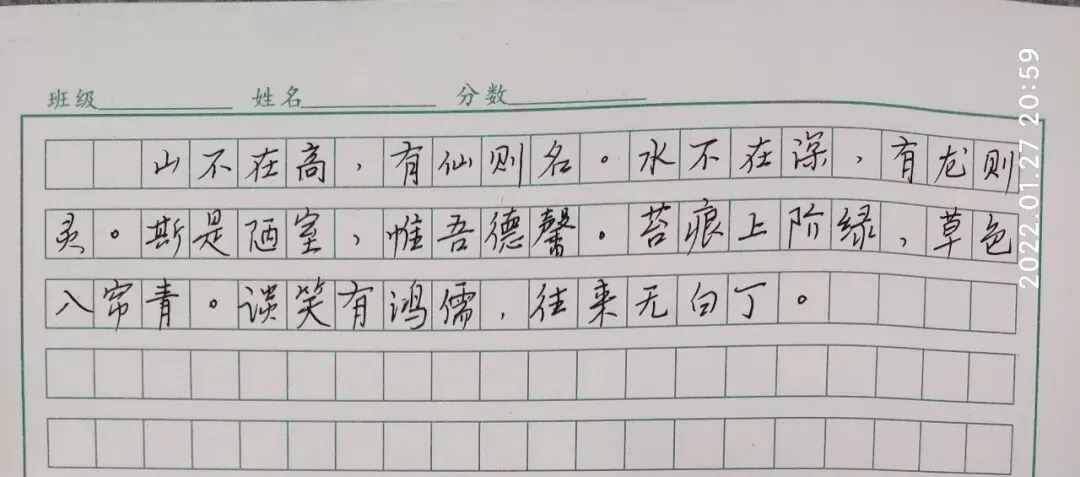 班级 姓名 分数
山不在高，有仙则名。水不在深，有龙则
灵。斯是陋室，惟吾德馨。苔痕上阶绿，草色
入帘青。谈笑有鸿儒，往来无白丁。
2022.01.27 20:59